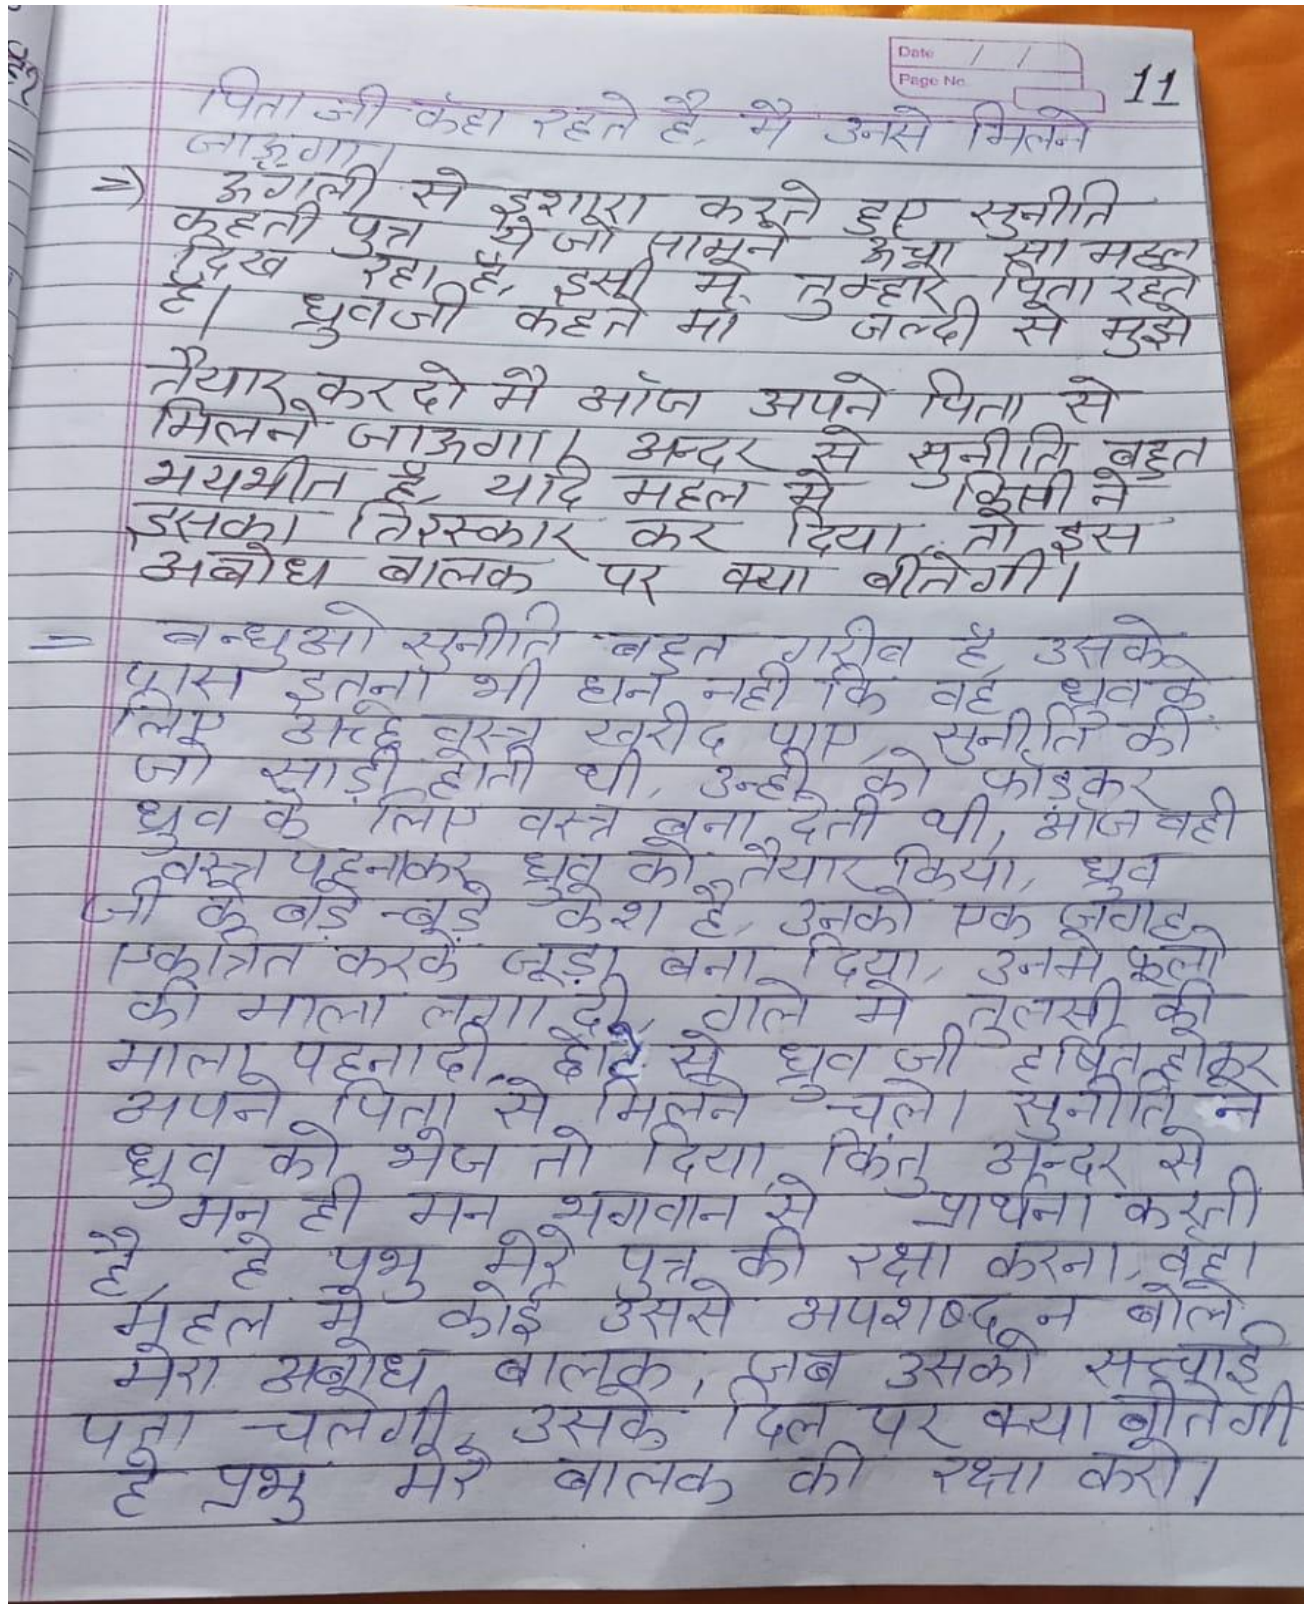 Date / /
Page No.
11
पिता जी कहा रहते है, मै उनसे मिलने
जाऊगा।
=> ऊगली से इशारा करते हुए सुनीति
कहती पुत्र ये जो सामने ऊचा सा महल
दिख रहा है, इसी मे तुम्हारे पिता रहते
है। ध्रुवजी कहते माँ जल्दी से मुझे
तैयार करदो मै ऑज अपने पिता से
मिलने जाऊगा। अन्दर से सुनीति बहुत
भयभीत है, यदि महल मे किसी ने
इसका तिरस्कार कर दिया, तो इस
अबोध बालक पर क्या बीतेगी।
= बन्धुओ सुनीति बहुत गरीब है, उसके
पास इतना भी धन नही कि वह ध्रुव के
लिए अच्छे वस्त्र खरीद पाए, सुनीति की
जो साड़ी होती थी, उन्ही को फाडकर
ध्रुव के लिए वस्त्र बना देती थी, ऑज वही
वस्त्र पहनाकर ध्रुव को तैयार किया, ध्रुव
जी के बड़े-बड़े केश है, उनको एक जगह
एकत्रित करके जूड़ा बना दिया, उनमे फूलो
की माला लगा दी, गले मे तुलसी की
माला पहनादी, से ध्रुव जी हर्षित होकर
अपने पिता से मिलने चले। सुनीति ने
ध्रुव को भेज तो दिया, किंतु अन्दर से
मन ही मन भगवान से प्रार्थना करती
है, हे प्रभु मेरे पुत्र की रक्षा करना, वहा
महल मे कोई उससे अपशब्द न बोले
मेरा अबोध बालक, जब उसको सच्चाई
पता चलेगी, उसके दिल पर क्या बीतेगी
हे प्रभु मेरे बालक की रक्षा करो।